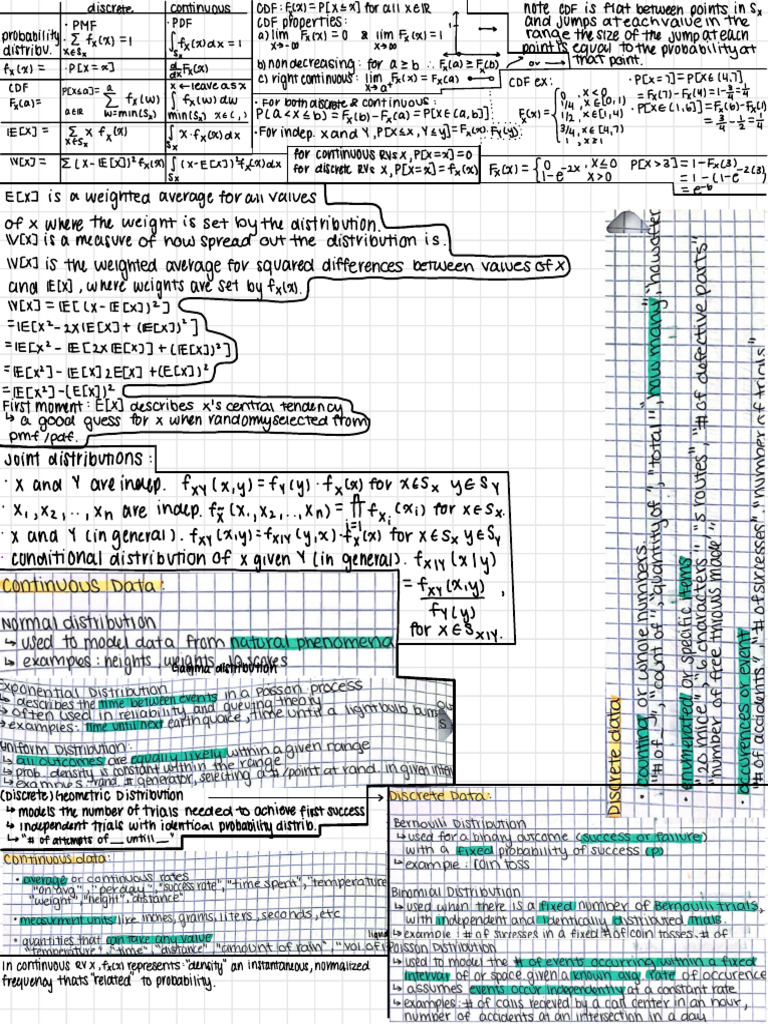 discrete continuous
probability distribu. • PMF • PDF
Σ fx(x) = 1 ∫ fx(x)dx = 1
x∈Sx Sx
fx(x) = • P[X=x] d/dx Fx(x)
CDF Fx(a)= P[X≤a] = Σ fx(w) x ← leave as x
a∈R w=min(Sx) ∫ fx(w) dw
min(Sx) x∈(,)
IE[X] = Σ x fx(x) ∫ x·fx(x)dx
V[X] = Σ(x-IE[X])² fx(x) ∫(x-E[X])² fx(x)dx
CDF: Fx(x) = P[X≤x] for all x∈R
CDF properties:
a) lim Fx(x) = 0 & lim Fx(x) = 1
x→-∞ x→∞
b) non decreasing: for a≥b ∴ Fx(a) ≥ Fx(b)
c) right continuous: lim Fx(x) = Fx(a)
x→a⁺
or
• For both discrete & continuous:
P(a<X≤b) = Fx(b)-Fx(a) = P[X∈(a,b]]
• For indep. X and Y, P[X≤x, Y≤y] = Fx(x)·Fy(y)
for continuous RVs X, P[X=x]=0
for discrete RVs X, P[X=x]=fx(x)
note CDF is flat between points in Sx
and jumps at each value in the
range the size of the jump at each
point is equal to the probability at
that point.
CDF ex:
Fx(x) = { 0, x<0
1/4, x∈[0,1)
1/2, x∈[1,4)
3/4, x∈[4,7)
1, x≥7
• P[X=7] = P[X∈(4,7]]
= Fx(7)-Fx(4) = 1-3/4 = 1/4
• P[X∈(1,6]] = Fx(6)-Fx(1)
= 3/4 - 1/2 = 1/4
Fx(x) = { 0, x≤0
1-e^-2x x>0
P[X>3] = 1-Fx(3)
= 1-(1-e^-2(3))
= e^-6
E[X] is a weighted average for all values
of x where the weight is set by the distribution.
V[X] is a measure of how spread out the distribution is.
V[X] is the weighted average for squared differences between values of X
and IE[X], where weights are set by fx(x).
V[X] = IE[(X-IE[X])²]
= IE[X²-2XIE[X] + (IE[X])²]
= IE[X² - IE[2XE[X]] + (IE[X])²]
= IE[X²] - IE[X]2E[X] + (E[X])²
= IE[X²]-(E[X])²
First moment: E[X] describes X's central tendency
↳ a good guess for X when randomly selected from
pmf/pdf.
Joint distributions:
• X and Y are indep. fxy(x,y) = fy(y)·fx(x) for x∈Sx y∈Sy
• X₁,X₂,..,Xn are indep. fx(x₁,x₂,..,xn) = ∏ fxi(xi) for x∈Sx.
i=1
• X and Y (in general). fxy(x,y) = fxy(y,x)·fx(x) for x∈Sx y∈Sy
• conditional distribution of X given Y (in general). fx|y(x|y)
= fxy(x,y) ,
fy(y)
for x∈Sx|y.
Continuous Data:
Normal distribution
↳ used to model data from natural phenomena
↳ examples: heights, weights, IQ scores
Gamma distribution
Exponential Distribution
↳ describes the time between events in a Poisson process
↳ often used in reliability and queuing theory
↳ examples: time until next earthquake, time until a lightbulb burns
Uniform Distribution:
↳ all outcomes are equally likely within a given range
↳ prob. density is constant within the range
↳ examples: rand # generator, selecting a #/point at rand. in given
(Discrete) Geometric Distribution
↳ models the number of trials needed to achieve first success
↳ independent trials with identical probability distrib.
↳ "# of attempts of __ untill __"
Continuous data:
• average or continuous rates
"on avg", "per day", "success rate", "time spent", "temperature
"weight", "height", distance"
• measurment units like inches, grams, liters, seconds, etc
• quantities that can take any value
"temperature", "time", "distance", "amount of rain", "vol. of liquid
In continuous RV X, fx(x) represents "density" an instantaneous, normalized
frequency thats "related" to probability.
Discrete Data:
Bernoulli Distribution
↳ used for a binary outcome (success or failure)
with a fixed probability of success (p)
↳ example: coin toss
Binomial Distribution
↳ used when there is a fixed number of Bernoulli trials,
with independent and identically distributed trials.
↳ example: # of successes in a fixed # of coin tosses, # of
Poisson Distribution
↳ used to model the # of events occurring within a fixed
interval of or space given a known avg. rate of occurence
↳ assumes events occur independently at a constant rate
↳ examples: # of calls recieved by a call center in an hour,
number of accidents at an intersection in a day
Discrete data
• counting or whole numbers.
"# of __", "count of", "quantity of", "total", "how many", "how often
• enumerated or specific items
"20 mice", "6 characters", "5 routes", "# of defective parts"
"number of free throws made"
• occurences or event
"# of accidents", "# of successes", "number of trials"